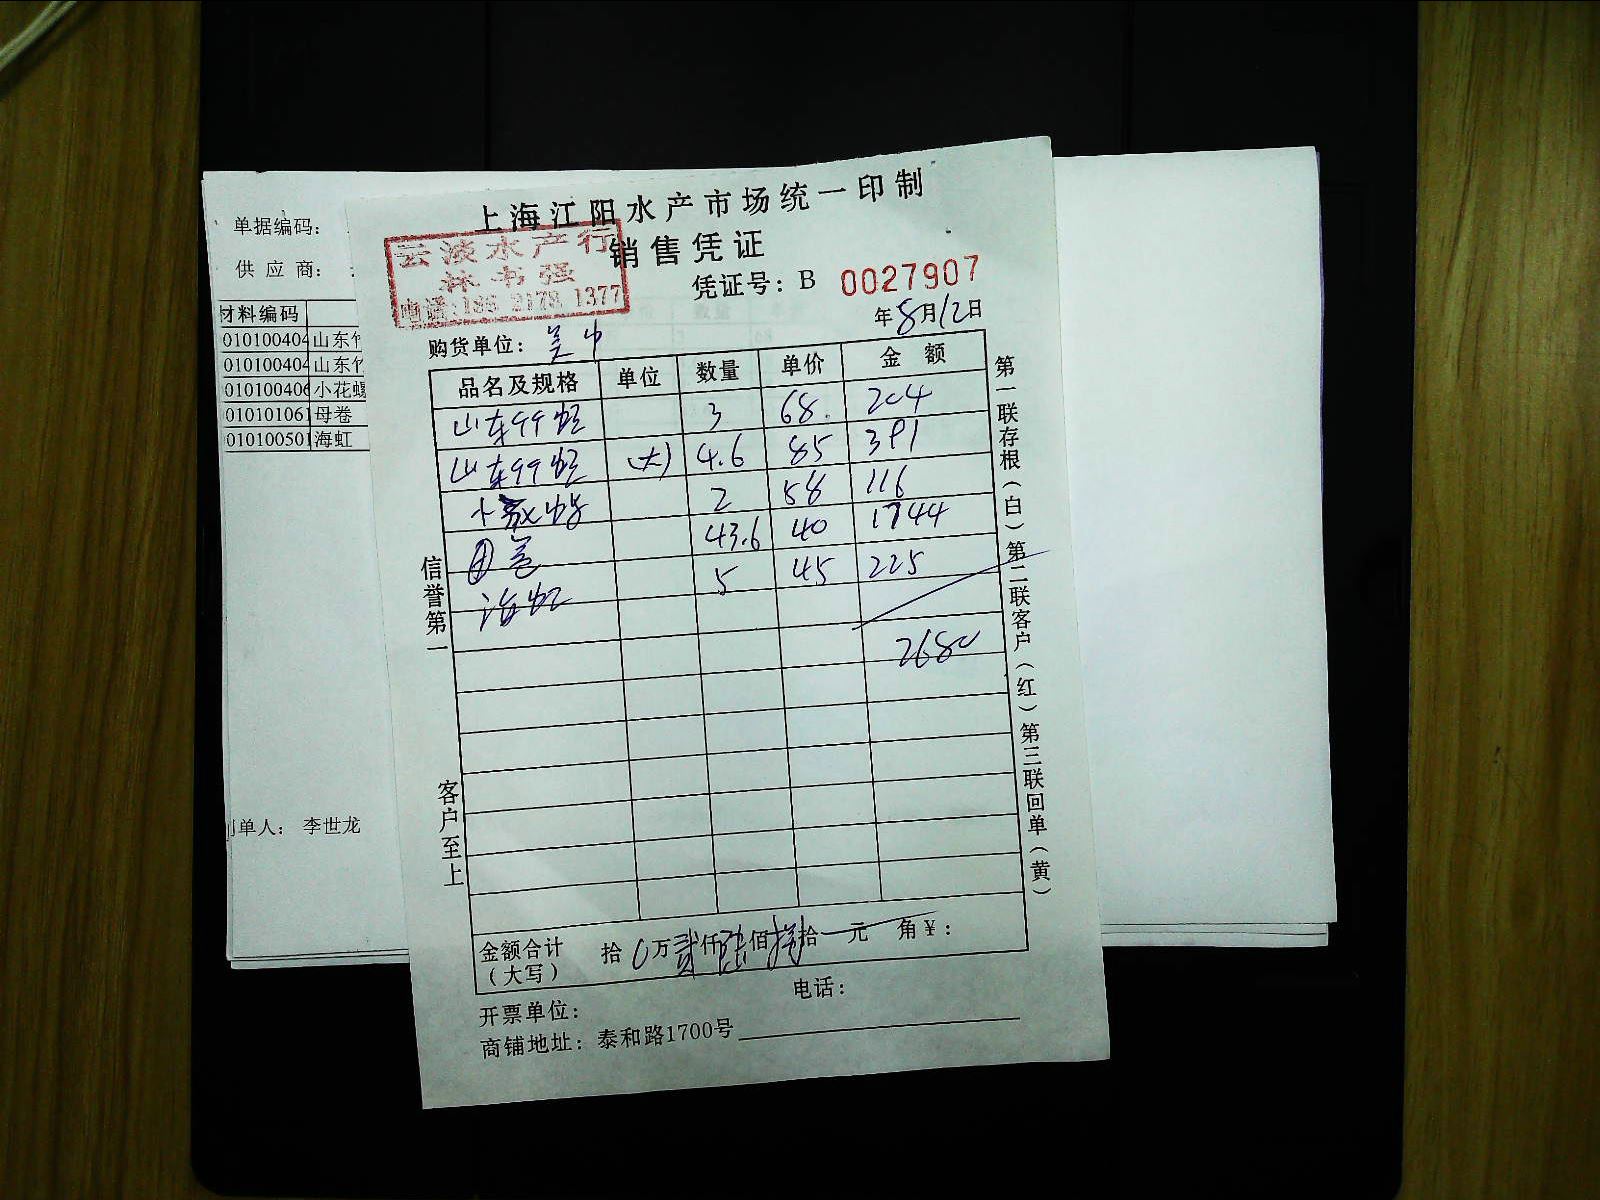 上海江阳水产市场统一印制
销售凭证
云淡水产行
林书强
电话:186 2178 1377
凭证号: B 0027907
年8月12日
购货单位: 吴中
品名及规格 单位 数量 单价 金额
山东99蛏 3 68. 204
山东99蛏 (大) 4.6 85 391
小 2 58 116
母卷 43.6 40 1744
海虹 5 45 225
2680
金额合计(大写) 拾0万贰仟陆佰捌拾一元 角¥:
开票单位: 电话:
商铺地址: 泰和路1700号
信誉第一
客户至上
第一联存根(白)第二联客户(红)第三联回单(黄)
单据编码:
供应商:
材料编码
010100404 山东竹
010100404 山东竹
010100406 小花螺
010101061 母卷
010100501 海虹
制单人: 李世龙